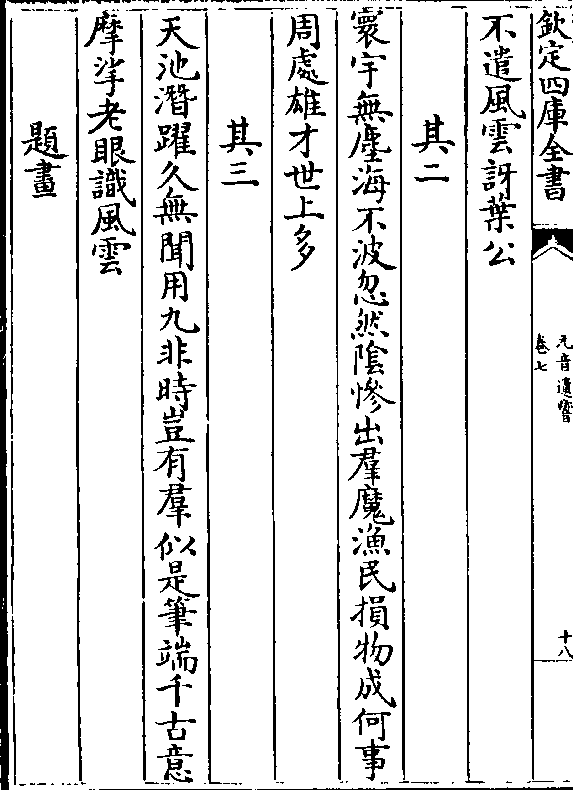 欽定四庫全書
元音遺響
卷七
十八
不遣風雲訝葉公
其二
寰宇無塵海不波忽然陰慘出羣魔漁民損物成何事
周處雄才世上多
其三
天池潛躍久無聞用九非時豈有羣似是筆端千古意
摩挲老眼識風雲
題畫